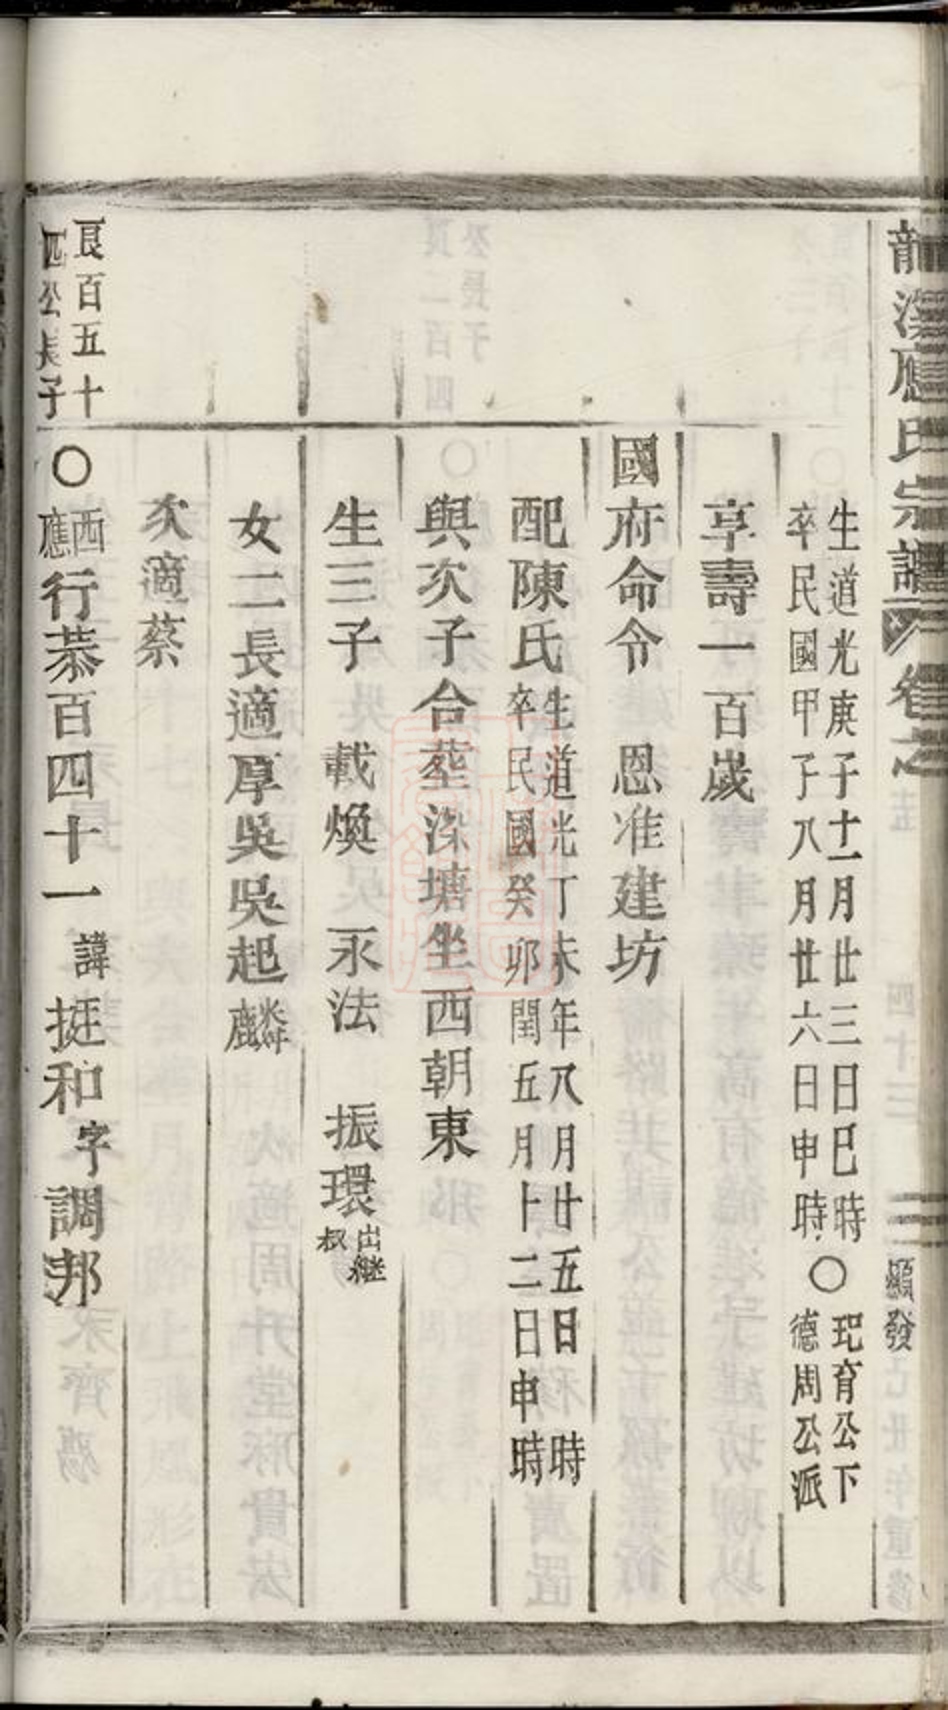 龍溪應氏宗譜 卷之 顯發
生道光庚子十一月廿三日巳時
卒民國甲子八月廿六日申時
〇
玘育公下
德周公派
享壽一百歲
國府命令 恩准建坊
配陳氏
生道光丁未年八月廿五日 時
卒民國癸卯閏五月十二日申時
與次子合塟深塘坐西朝東
生三子 載煥 永法 振環
出繼
叔
女二長適厚吳吳起麟
次適蔡
良百五十
四公長子
〇
西
應
行恭百四十一諱挺和字調邦